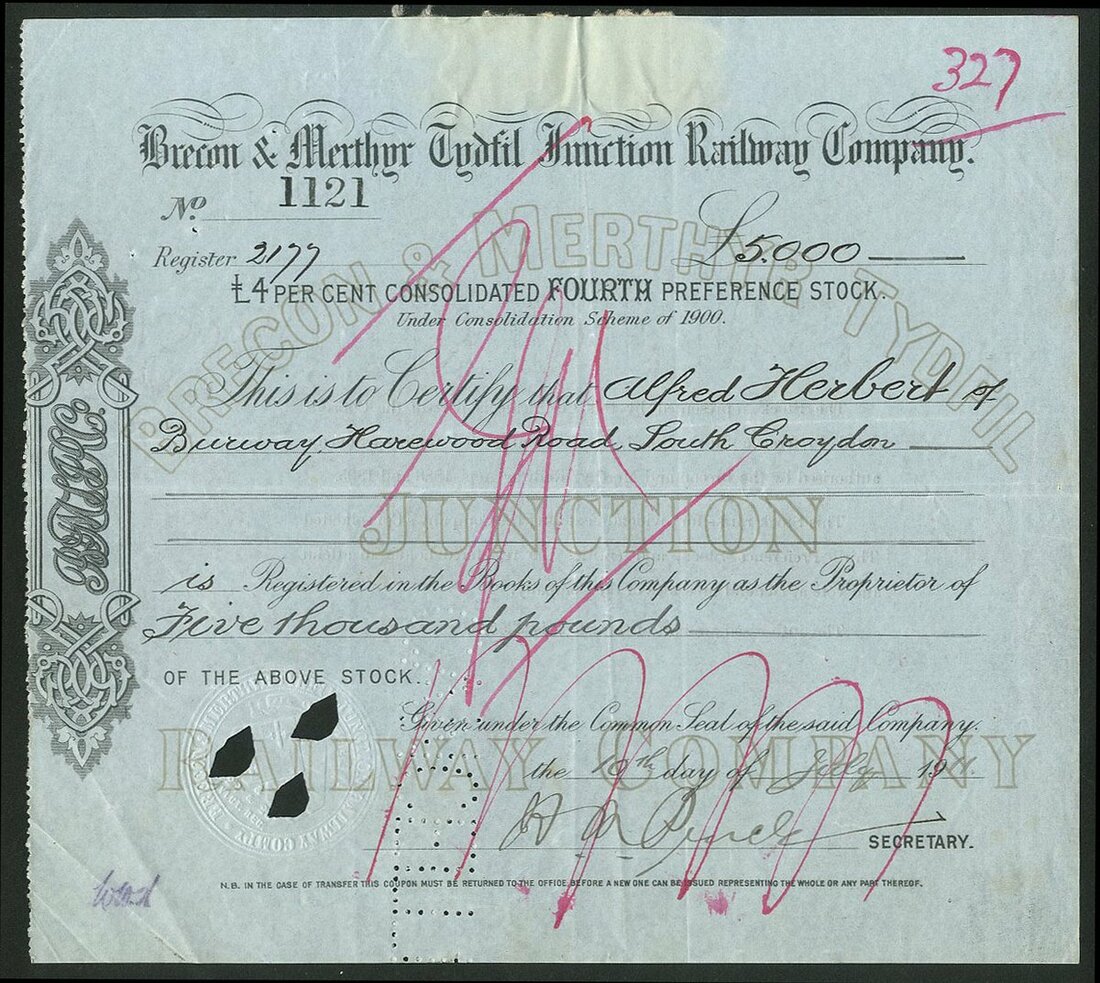 327
Brecon & Merthyr Tydfil Junction Railway Company.
No. 1121
Register 2177 £5.000
£4 PER CENT CONSOLIDATED FOURTH PREFERENCE STOCK.
Under Consolidation Scheme of 1900.
This is to Certify that Alfred Herbert of
Burway, Harewood Road, South Croydon
is Registered in the Books of this Company as the Proprietor of
Five thousand pounds
OF THE ABOVE STOCK.
Given under the Common Seal of the said Company.
the 10th day of July 19
SECRETARY.
N.B. IN THE CASE OF TRANSFER THIS COUPON MUST BE RETURNED TO THE OFFICE BEFORE A NEW ONE CAN BE ISSUED REPRESENTING THE WHOLE OR ANY PART THEREOF.
BRECON & MERTHYR TYDFIL
JUNCTION
RAILWAY COMPANY